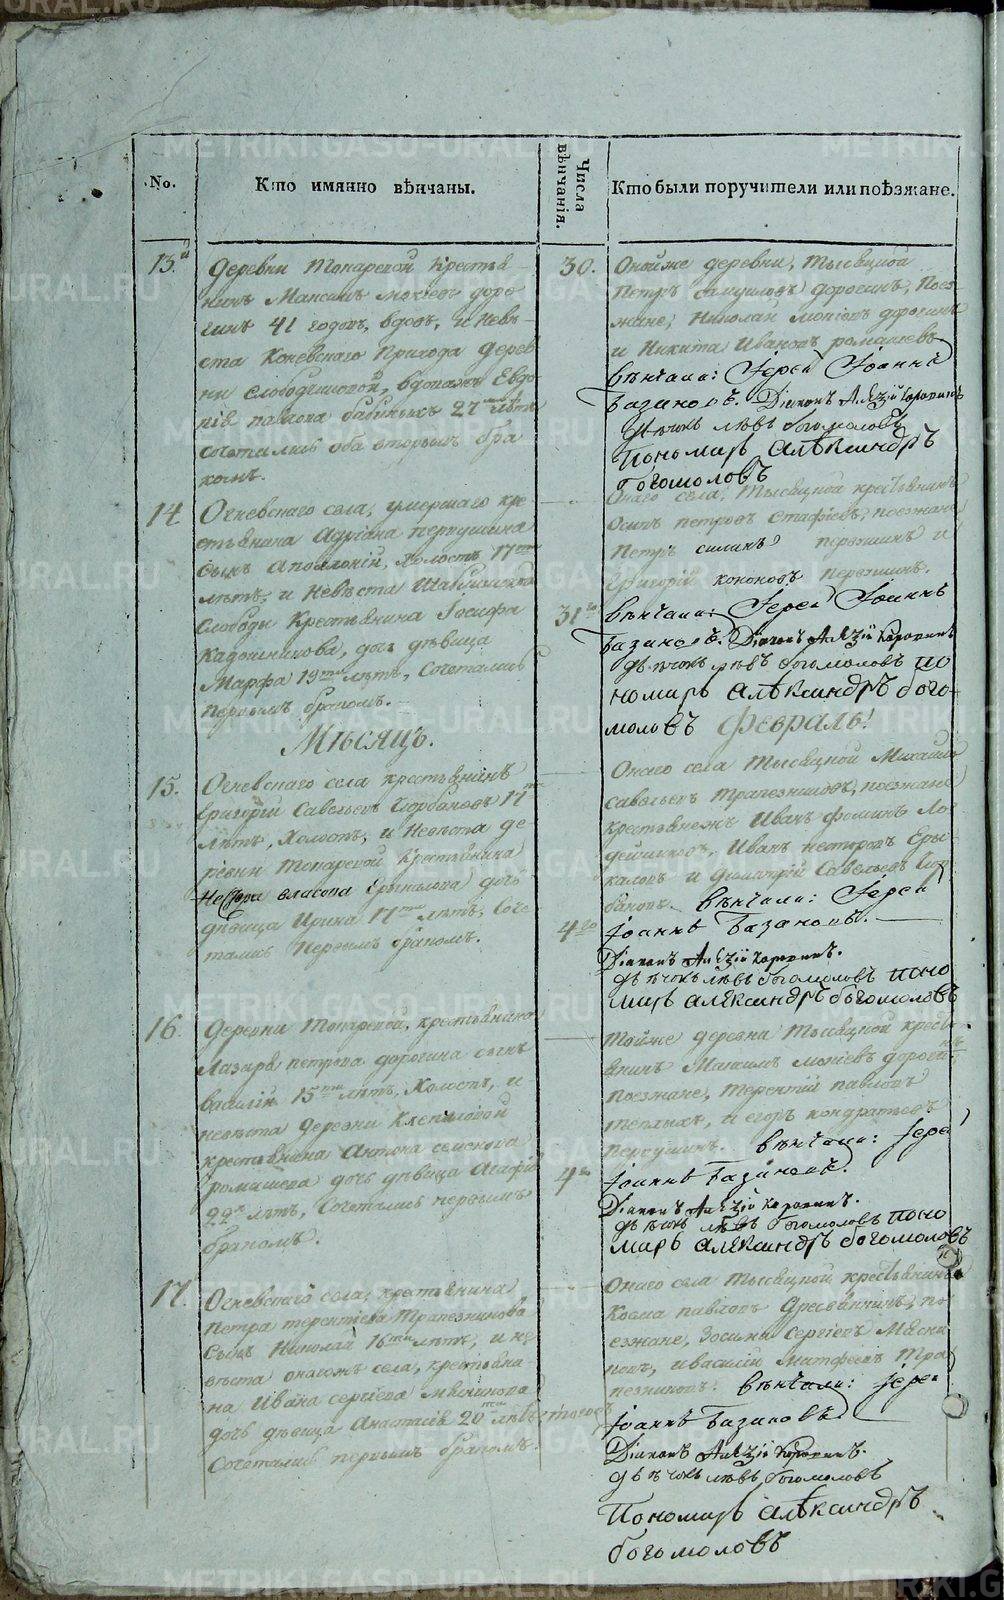 No.
Кто имянно вѣнчаны.
Числа вѣнчанія.
Кто были поручители или поѣзжане.
13й
Деревни Токаревой крестья-
нинъ Максимъ Мокѣевъ Доро-
гинъ 41 годовъ, вдовъ, и невѣ-
ста Коневскаго Прихода дерев
ни Слободчиковой, вдова Евдо
кія Павлова 27 лѣтъ
сочетались оба вторымъ бра
комъ.
30.
Онойже деревни, Тысяцкой
Петръ Самуиловъ Дорогинъ, Поѣз-
жане, Николай Мокіевъ Дорогинъ
и Никита Ивановъ Ромашевъ
вѣнчали: Іерей Іоаннъ
Базановъ. Діаконъ Алѣѯій
дьячокъ Лявъ Богомоловъ
Пономарь Алѣксандръ
Богомоловъ
14
Огневскаго села, умершаго кре
стьянина Адріана Первушина
сынъ Аполлоній, холостъ 17
лѣтъ, и невѣста
Слободы крестьянина Іосифа
Кадошникова, дочь дѣвица
Марфа 19 лѣтъ, сочетались
первымъ бракомъ.
Онаго села, Тысяцкой крестьянинъ
Осипъ Петровъ поезжане
Петръ Силинъ и
Григорій Кононовъ
31го
вѣнчали: Іерей Іоаннъ
Базановъ. Діаконъ Алѣѯій
дьячокъ Лявъ Богомоловъ По
номарь Алѣксандръ Бого-
моловъ
Мѣсяцъ.
Февраль!
15.
Огневскаго села крестьянинъ
Григорій Савельевъ Горбуновъ 17
лѣтъ, холостъ, и невѣста де
ревни Токаревой крестьянина
Нестора Власова Ерыкалова дочь
дѣвица Ирина 17 лѣтъ, соче
тались первымъ бракомъ.
Онаго села Тысяцкой Михайло
Савельевъ Трапезниковъ, поезжане
крестьянежъ Иванъ Фоминъ Ло
Иванъ Несторовъ Еры-
каловъ и Димитрій Савельевъ Гор
буновъ. вѣнчали: Іерей
4го
Іоаннъ Базановъ.
Діаконъ Алѣѯій
дьячокъ Лявъ Богомоловъ Поно
марь Алѣксандръ Богомоловъ
16.
Деревни Токаревой, крестьянина
Лазаря Петрова Дорогина сынъ
Василій 15 лѣтъ, холостъ, и
невѣста деревни
крестьянина Антона
Ромашева дочь дѣвица Агафія
22х лѣтъ, сочетались первымъ
бракомъ.
Тойже деревни Тысяцкой кресть
янинъ Максимъ Мокіевъ Дорогинъ
поезжане, Терентій Павловъ
и Егоръ Кондратьевъ
Первушинъ. вѣнчали: Іерей
4го
Іоаннъ Базановъ.
Діаконъ Алѣѯій
дьячокъ Лявъ Богомоловъ Поно
марь Алѣксандръ Богомоловъ
17.
Огневскаго села, крестьянина
Петра Терентіева Трапезникова
сынъ Николай 16 лѣтъ, и не
вѣста онагожъ села, крестьяни-
на Ивана Сергіева Мясникова
дочь дѣвица Анастасія 20
сочетались первымъ бракомъ.
Онаго села Тысяцкой крестьянинъ
Косма Павловъ Дресвянкинъ, по
езжане, Зосима Сергіевъ Мясни
ковъ, и Василій Матфеевъ Тра
пезниковъ. вѣнчали: Іерей
Іоаннъ Базановъ
Діаконъ Алѣѯій
дьячокъ Лявъ Богомоловъ
Пономарь Алѣксандръ
Богомоловъ
METRIKI.GASO-URAL.RU